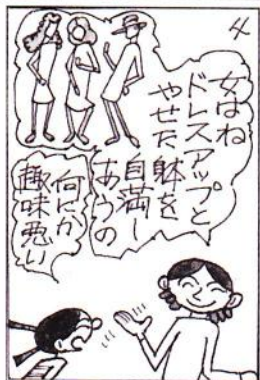 4
女はね
ドレスアップと
やせた躰を
自満し
あうの
何だか
趣味悪い